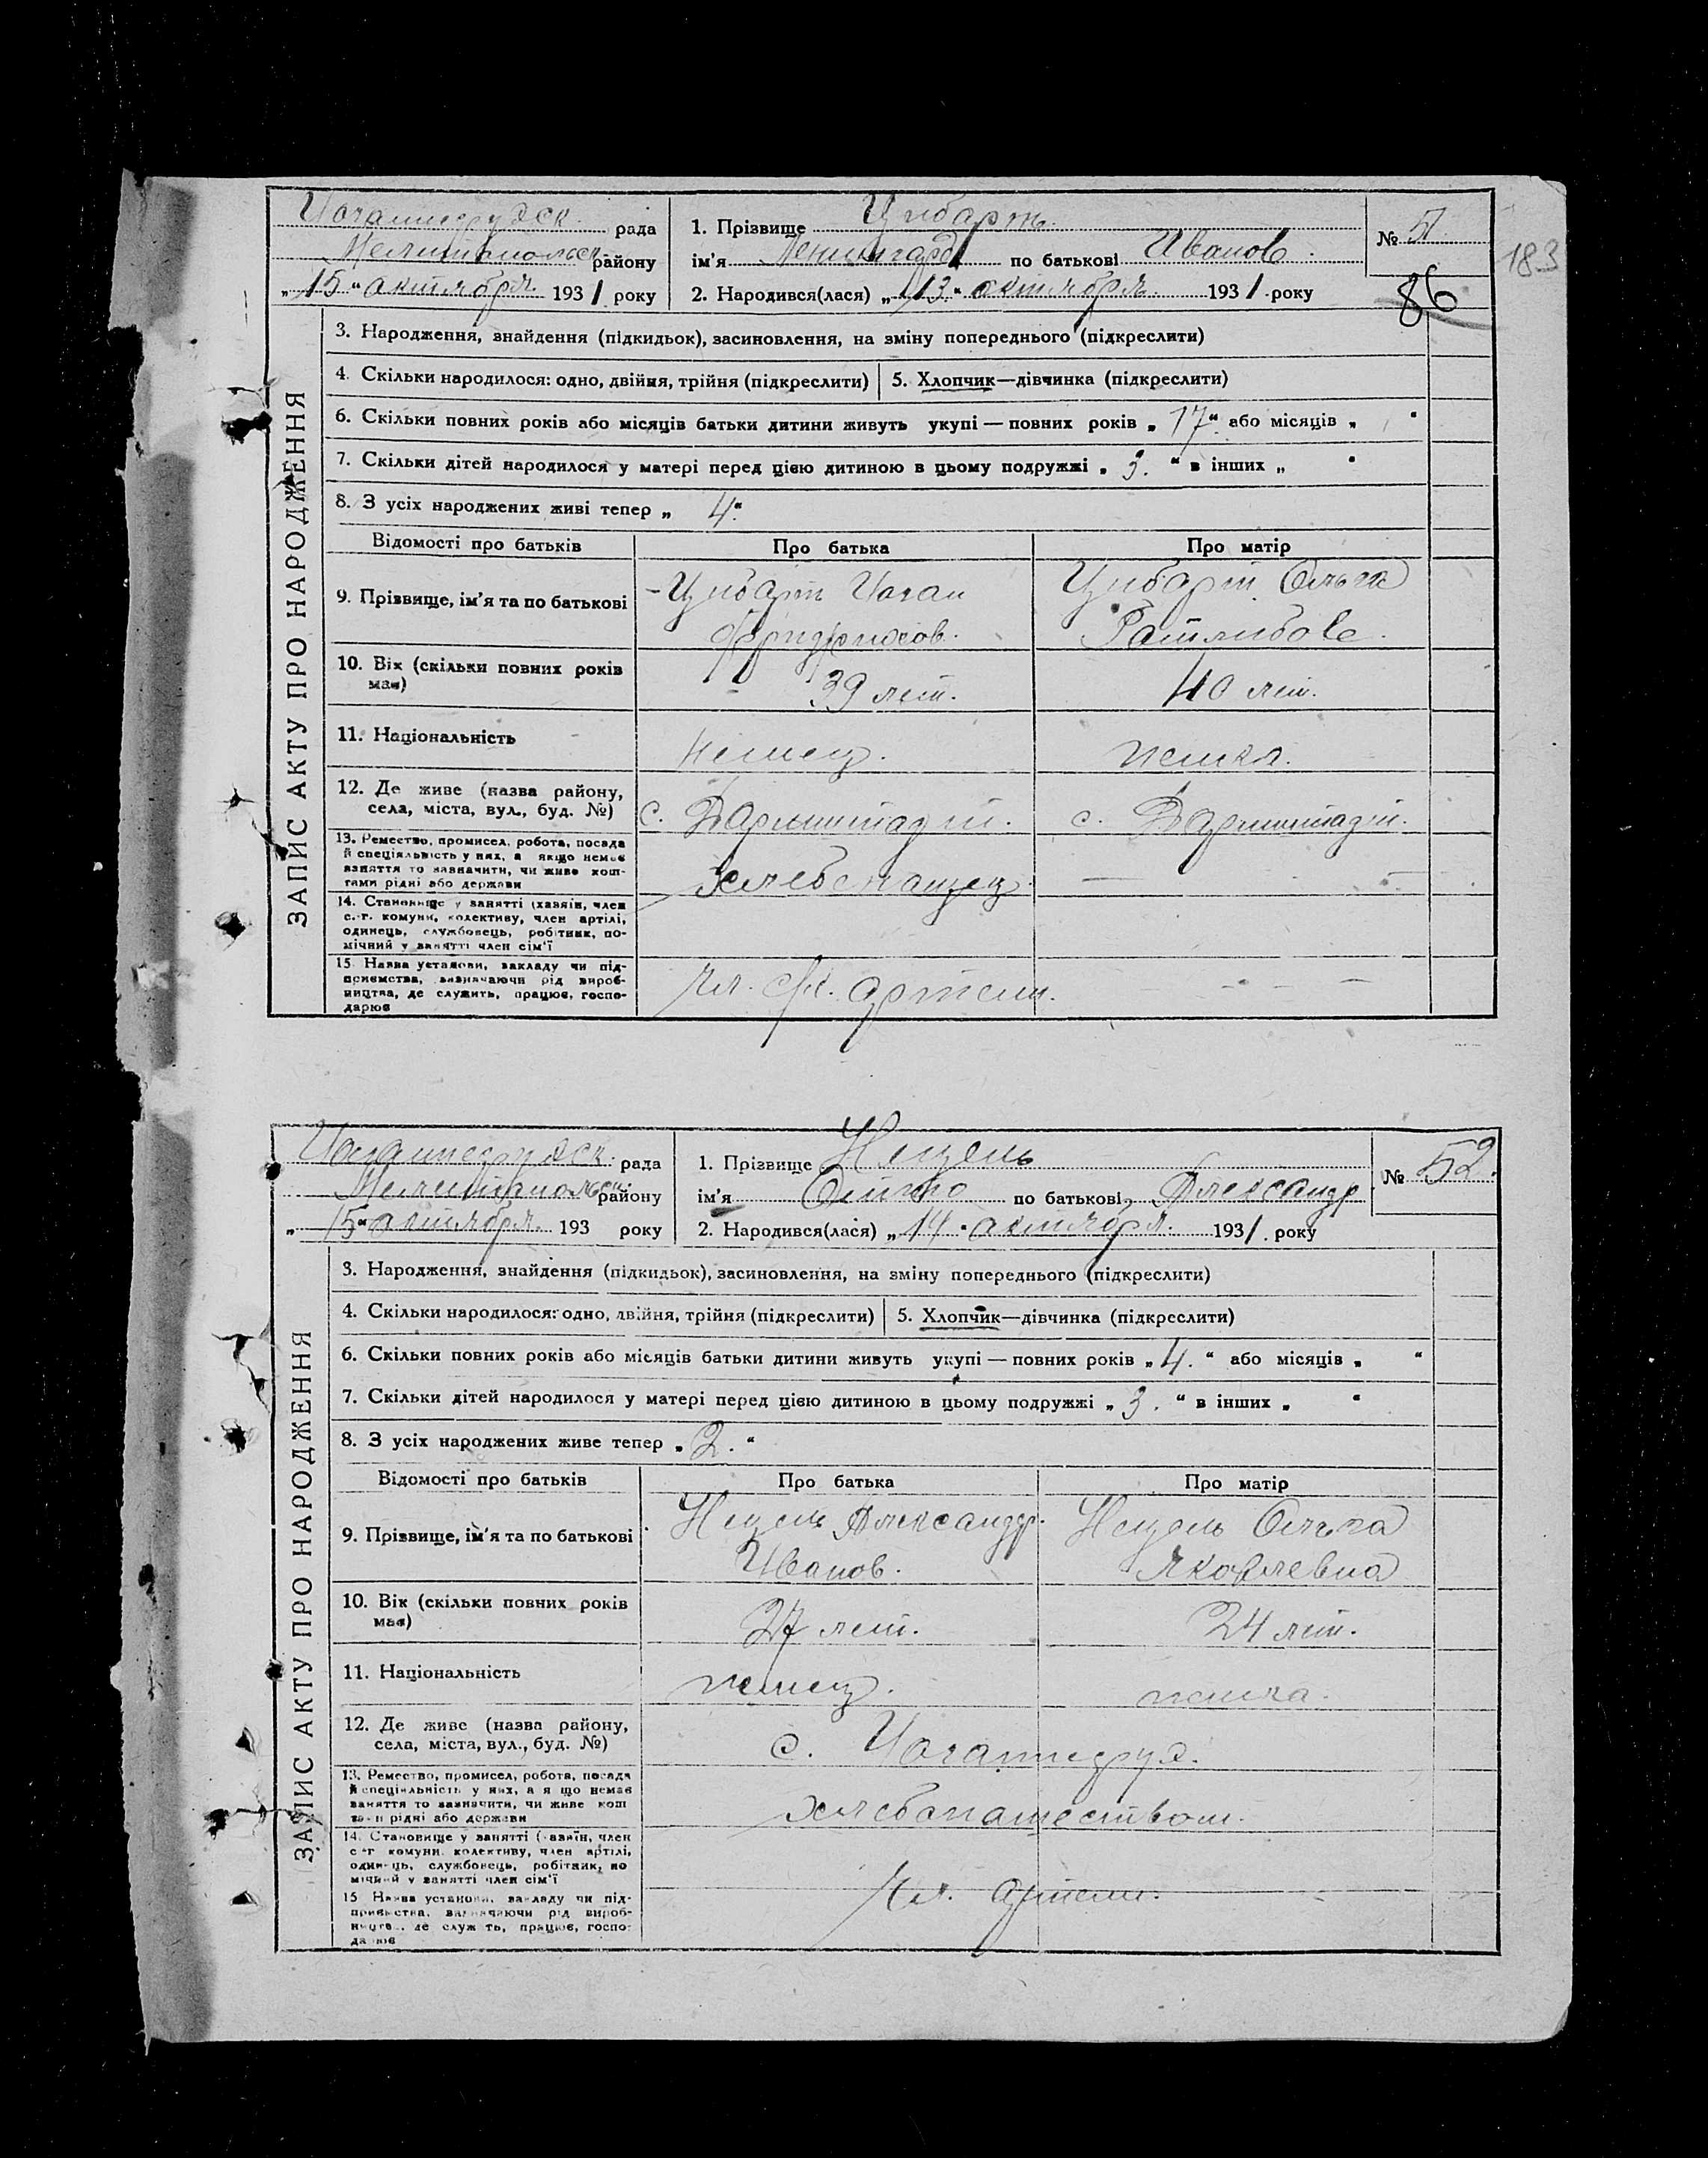 Иоганнедруdск. рада
Мелитопольск. району
„15“ октября 1931 року
1. Прізвище Цибарт.
ім'я Ленингард по батькові Иванов.
2. Народився(лася) „13“ октября 1931 року
№ 51.
183
86
ЗАПИС АКТУ ПРО НАРОДЖЕННЯ
3. Народження, знайдення (підкидьок), засиновлення, на зміну попереднього (підкреслити)
4. Скільки народилося: одно, двійня, трійня (підкреслити) 5. Хлопчик—дівчинка (підкреслити)
6. Скільки повних років або місяців батьки дитини живуть укупі — повних років „17“ або місяців „ “
7. Скільки дітей народилося у матері перед цією дитиною в цьому подружжі „ “ в інших „ “
8. З усіх народжених живі тепер „4“
Відомості про батьків Про батька Про матір
9. Прізвище, ім'я та по батькові
Цибарт Иоган
Фридрихов.
Цибарт Ольга
Готлибов
10. Вік (скільки повних років
має)
39 лет. 40 лет.
11. Національність немец. немка.
12. Де живе (назва району,
села, міста, вул., буд. №)
с. Дармштадт. с. Дармштадт.
13. Ремество, промисел, робота, посада
й спеціяльність у них, а якщо немає
заняття то зазначити, чи живе кош-
тами рідні або держави
Хлебопашец. —
14. Становище у занятті (хазяїн, член
с.-г. комуни, колективу, член артілі,
одинець, службовець, робітник, по-
мічний у занятті член сім'ї
15. Назва установи, закладу чи під-
приємства, зазначаючи рід вироб-
ництва, де служить, працює, госпо-
дарює
Чл. с/х. артели. - - - -
Иоганнедруdск. рада
Мелитопольск. району
„15“ октября. 193 року
1. Прізвище Нецель
ім'я Отто по батькові Александр.
2. Народився(лася) „14“ октября. 1931. року
№ 52.
ЗАПИС АКТУ ПРО НАРОДЖЕННЯ
3. Народження, знайдення (підкидьок), засиновлення, на зміну попереднього (підкреслити)
4. Скільки народилося: одно, двійня, трійня (підкреслити) 5. Хлопчик—дівчинка (підкреслити)
6. Скільки повних років або місяців батьки дитини живуть укупі — повних років „4.“ або місяців „ “
7. Скільки дітей народилося у матері перед цією дитиною в цьому подружжі „3.“ в інших „ “
8. З усіх народжених живе тепер „2.“
Відомості про батьків Про батька Про матір
9. Прізвище, ім'я та по батькові
Нецель Александр.
Иванов.
Нецель Ольга
Яковлевна
10. Вік (скільки повних років
має)
27 лет. 24 лет.
11. Національність немец. немка.
12. Де живе (назва району,
села, міста, вул., буд. №)
с. Иоганнедруd.
13. Ремество, промисел, робота, посада
й спеціяльність у них, а якщо немає
заняття то зазначити, чи живе кош
тами рідні або держави
хлебопашеством.
14. Становище у занятті (хазяїн, член
с-г комуни, колективу, член артілі,
одинець, службовець, робітник, по
мічний у занятті член сім'ї
15 Назва установи, закладу чи під-
приємства, зазначаючи рід вироб-
ництва, де служить, працює, госпо-
дарює
Чл. артели.